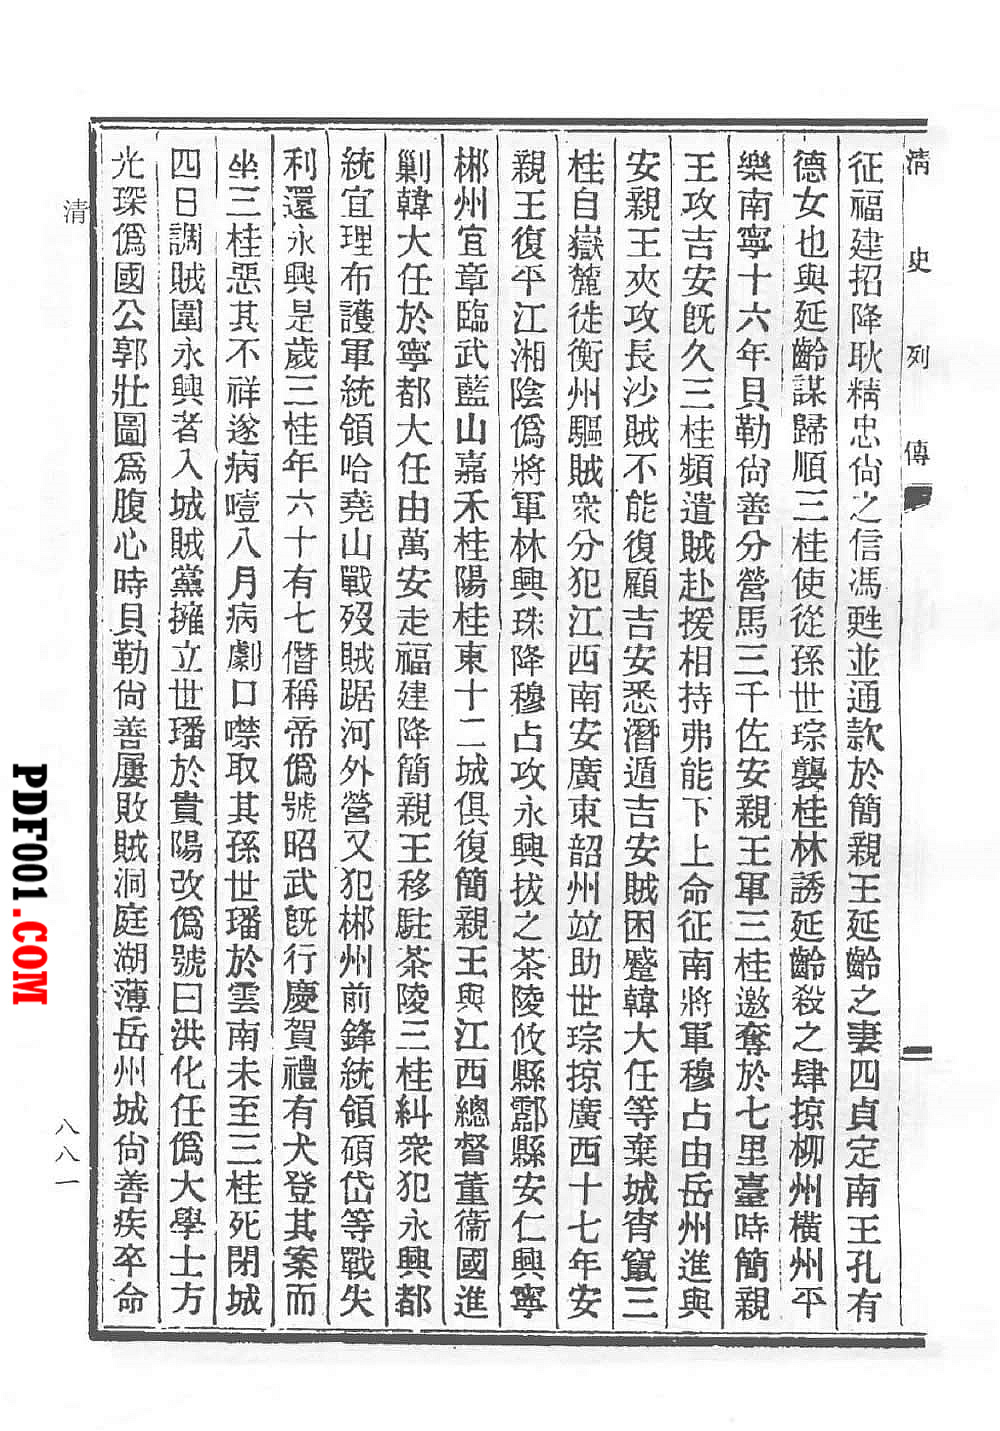 清史列傳
征福建招降耿精忠尙之信馮甦並通款於簡親王延齡之妻四貞定南王孔有
德女也與延齡謀歸順三桂使從孫世琮襲桂林誘延齡殺之肆掠柳州橫州平
樂南寧十六年貝勒尙善分營馬三千佐安親王軍三桂邀奪於七里臺時簡親
王攻吉安旣久三桂頻遣賊赴援相持弗能下上命征南將軍穆占由岳州進與
安親王夾攻長沙賊不能復顧吉安悉潛遁吉安賊困蹙韓大任等棄城宵竄三
桂自嶽麓徙衡州驅賊衆分犯江西南安廣東韶州竝助世琮掠廣西十七年安
親王復平江湘陰僞將軍林興珠降穆占攻永興拔之茶陵攸縣酃縣安仁興寧
郴州宜章臨武藍山嘉禾桂陽桂東十二城俱復簡親王與江西總督董衞國進
剿韓大任於寧都大任由萬安走福建降簡親王移駐茶陵三桂糾衆犯永興都
統宜理布護軍統領哈克山戰歿賊踞河外營又犯郴州前鋒統領碩岱等戰失
利還永興是歲三桂年六十有七僭稱帝僞號昭武旣行慶賀禮有犬登其案而
坐三桂惡其不祥遂病噎八月病劇口噤取其孫世璠於雲南未至三桂死閉城
四日調賊圍永興者入城賊黨擁立世璠於貴陽改僞號曰洪化任僞大學士方
光琛僞國公郭壯圖爲腹心時貝勒尙善屢敗賊洞庭湖薄岳州城尙善疾卒命
清
八八一
PDF001.COM